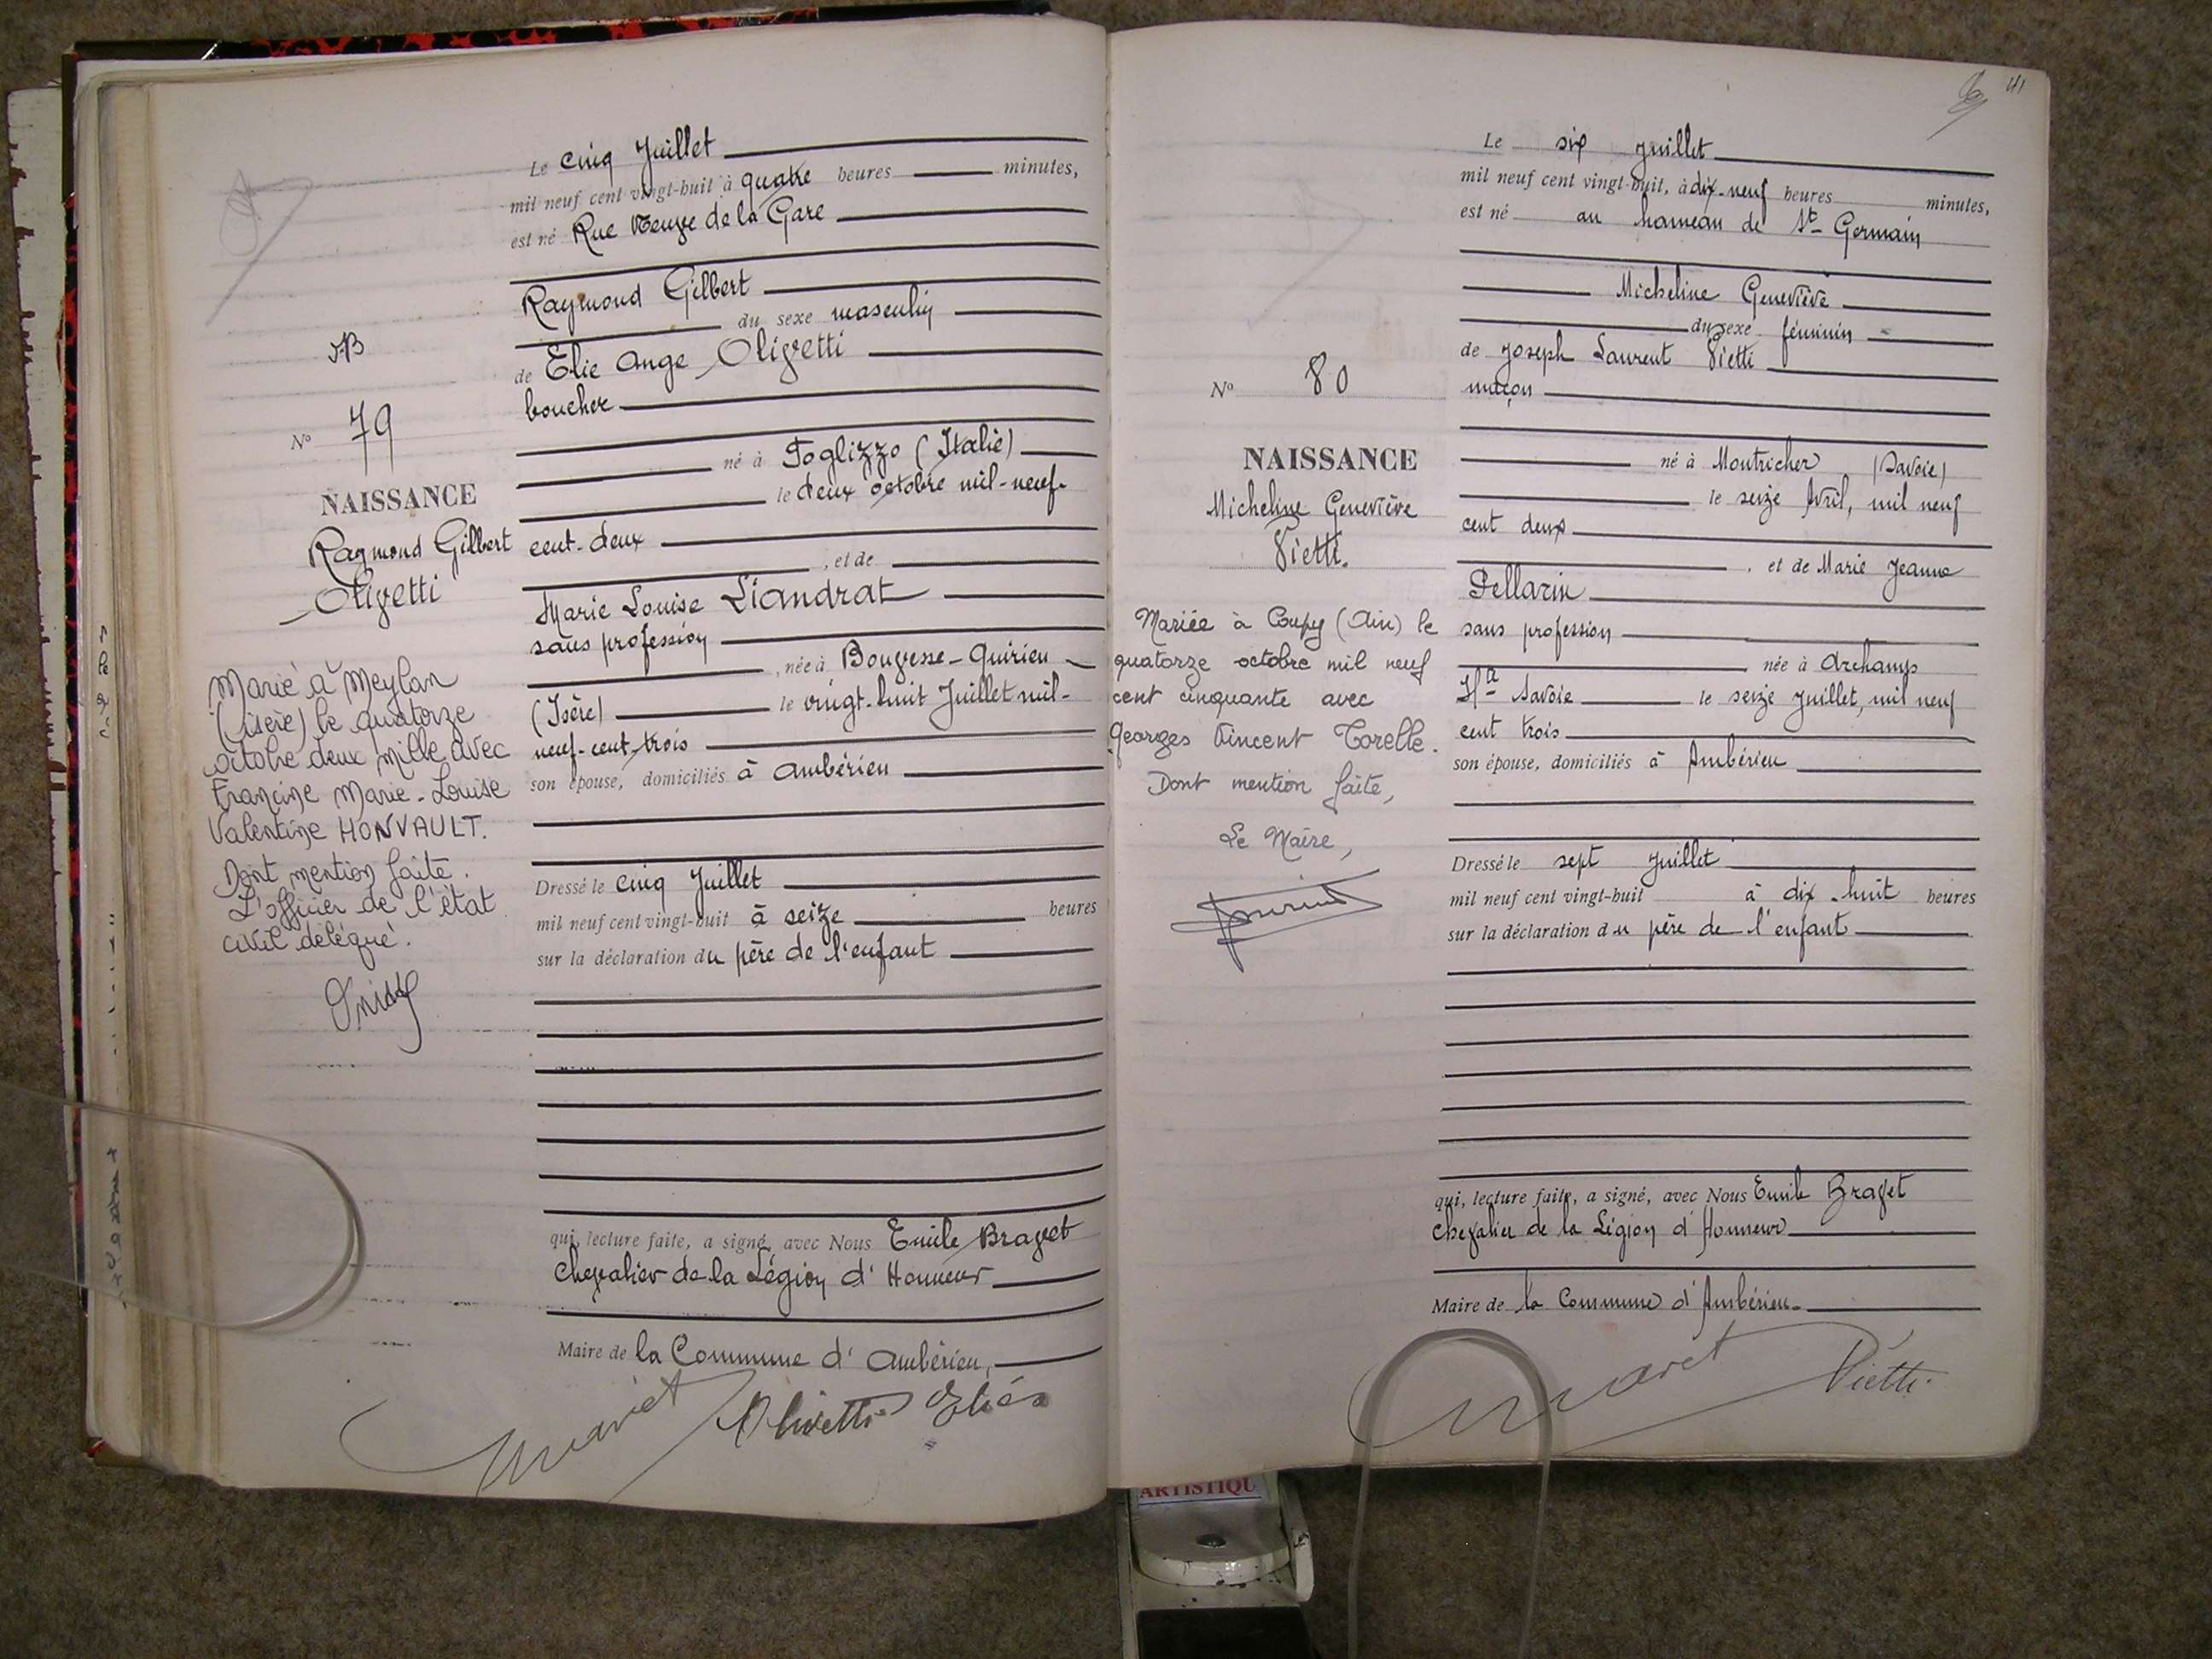 Le cinq Juillet
mil neuf cent vingt-huit à quatre heures minutes,
est né Rue Neuve de la Gare
Raymond Gilbert
du sexe masculin
de Elie Ange Olivetti
boucher
né à Foglizzo (Italie)
le deux octobre mil-neuf-
cent-deux
, et de
Marie Louise Liandrat
sans profession
, née à Bouvesse-Quirieu
(Isère) le vingt-huit Juillet mil-
neuf-cent-trois
son épouse, domiciliés à Ambérieu
Dressé le cinq Juillet
mil neuf cent vingt-huit à seize heures
sur la déclaration du père de l'enfant
qui, lecture faite, a signé, avec Nous Emile Bravet
Chevalier de la Légion d'Honneur
Maire de la Commune d'Ambérieu,
Olivetti Elie
N° 79
NAISSANCE
Raymond Gilbert
Olivetti
Marié à Meylan
(Isère) le quatorze
octobre deux mille avec
Francine Marie-Louise
Valentine HONVAULT.
Dont mention faite.
L'officier de l'état
civil délégué.
41
Le six juillet
mil neuf cent vingt-huit, à dix-neuf heures minutes,
est né au hameau de St Germain
Micheline Geneviève
du sexe féminin
de Joseph Laurent Pietti
maçon
né à Montricher (Savoie)
le seize Avril, mil neuf
cent deux
, et de Marie Jeanne
Pellarin
sans profession
née à Archamps
Hte Savoie le seize juillet, mil neuf
cent trois
son épouse, domiciliés à Ambérieu
Dressé le sept juillet
mil neuf cent vingt-huit à dix-huit heures
sur la déclaration du père de l'enfant
qui, lecture faite, a signé, avec Nous Emile Bravet
Chevalier de la Légion d'Honneur
Maire de la Commune d'Ambérieu.
Pietti
N° 80
NAISSANCE
Micheline Geneviève
Pietti.
Mariée à Coupy (Ain) le
quatorze octobre mil neuf
cent cinquante avec
Georges Vincent Torelle.
Dont mention faite,
Le Maire,
ARTISTIQU